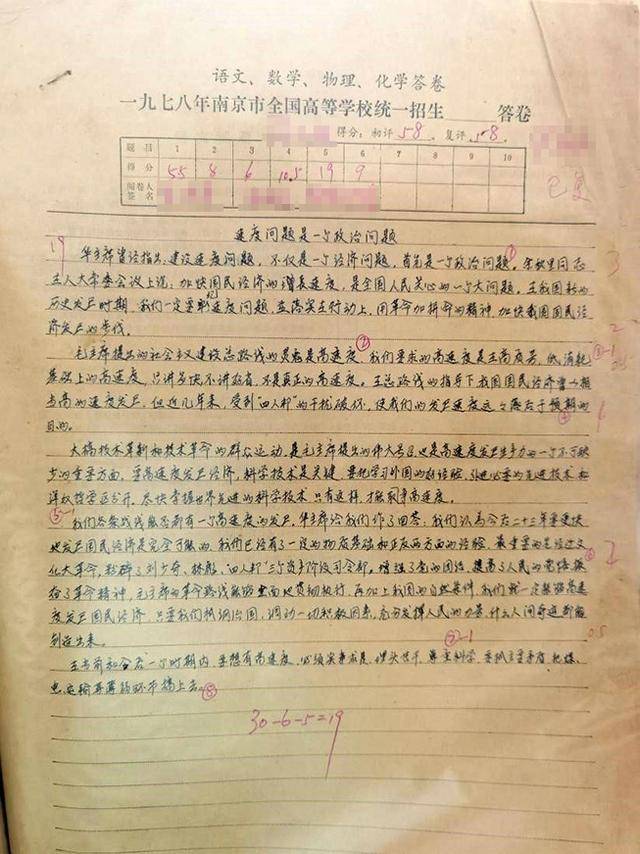 语文、数学、物理、化学答卷
一九七八年南京市全国高等学校统一招生 答卷
得分：初评 58. 复评 58.
题目 1 2 3 4 5 6 7 8 9 10
得分 55 8 6 10.5 19 9
阅卷人签名
已复
19
速度问题是一个政治问题
华主席曾经指出：建设速度问题，不仅是一个经济问题，首先是一个政治问题。余秋里同志
在人大常委会议上说：加快国民经济的增长速度，是全国人民关心的一个大问题。在我国新的
历史发展时期，我们一定要 速度问题， 落实在行动上，用革命加拼命的精神，加快我国国民经
济发展的步伐。
毛主席提出的社会主义建设总路线的灵魂是高速度。我们要求的高速度是在高质量、低消耗
基础上的高速度，只讲多快不讲好省，不是真正的高速度。在总路线的指导下我国国民经济曾以相
当高的速度发展，但近几年来，受到“四人帮”的干扰破坏，使我们的发展速度远远落后于预期的
目的。
大搞技术革新和技术革命的群众运动，是毛主席提出的伟大号召也是高速度发展生产力的一个不可缺
少的重要方面。要高速度发展经济，科学技术是关键。要把学习外国的好经验，引进必要的先进技术和
洋奴哲学区分开，尽快掌握世界先进的科学技术，只有这样，才能有高速度。
我们各条战线能否都有一个高速度的发展，华主席给我们作了回答：我们认为今后二十三年要更快
地发展国民经济是完全可能的，我们已经有了一定的物质基础和正反两方面的经验，最重要的是经过文
化大革命，粉碎了刘少奇、林彪、“四人帮”三个资产阶级司令部，增强了党的团结，提高了人民的觉悟，
振奋了革命精神，毛主席的革命路线能够全面地贯彻执行，再加上我国的自然条件，我们就一定能够高速
度发展国民经济，只要我们抓纲治国，调动一切积极因素，充分发挥人民的力量，什么人间奇迹都能
创造出来。
在当前和今后一个时期内，要想有高速度，必须实事求是，埋头苦干，尊重科学，要抓主要矛盾，把煤、
电、运输等薄弱环节搞上去。
30-6-5=19